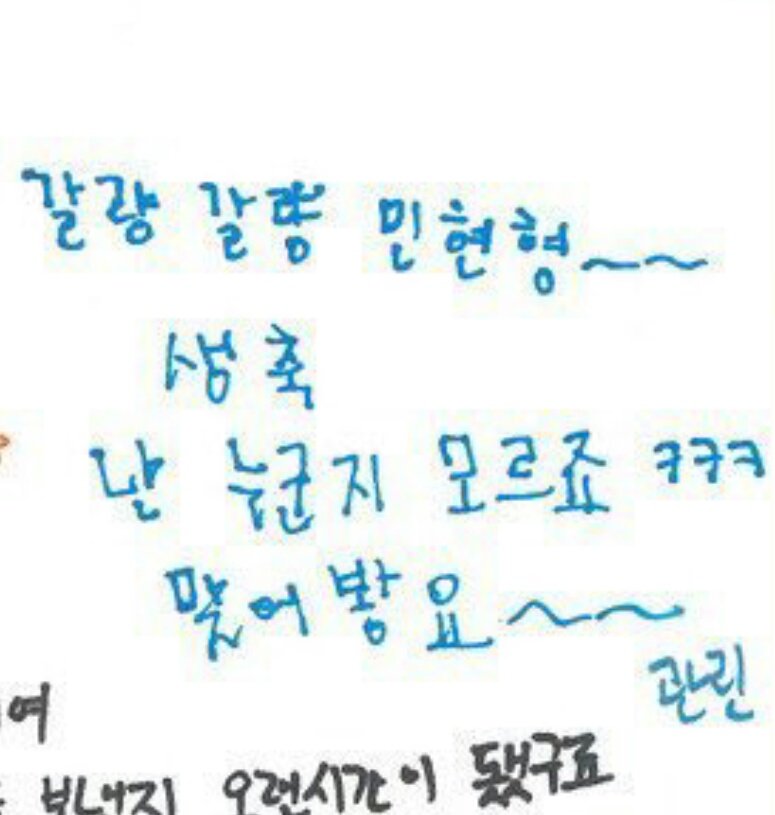 갈량 갈량 민현형~~
생축
난 누군지 모르죠 ㅋㅋㅋ
맞어봥요~~
관린
여
보낸지 오랜시간이 됐구료